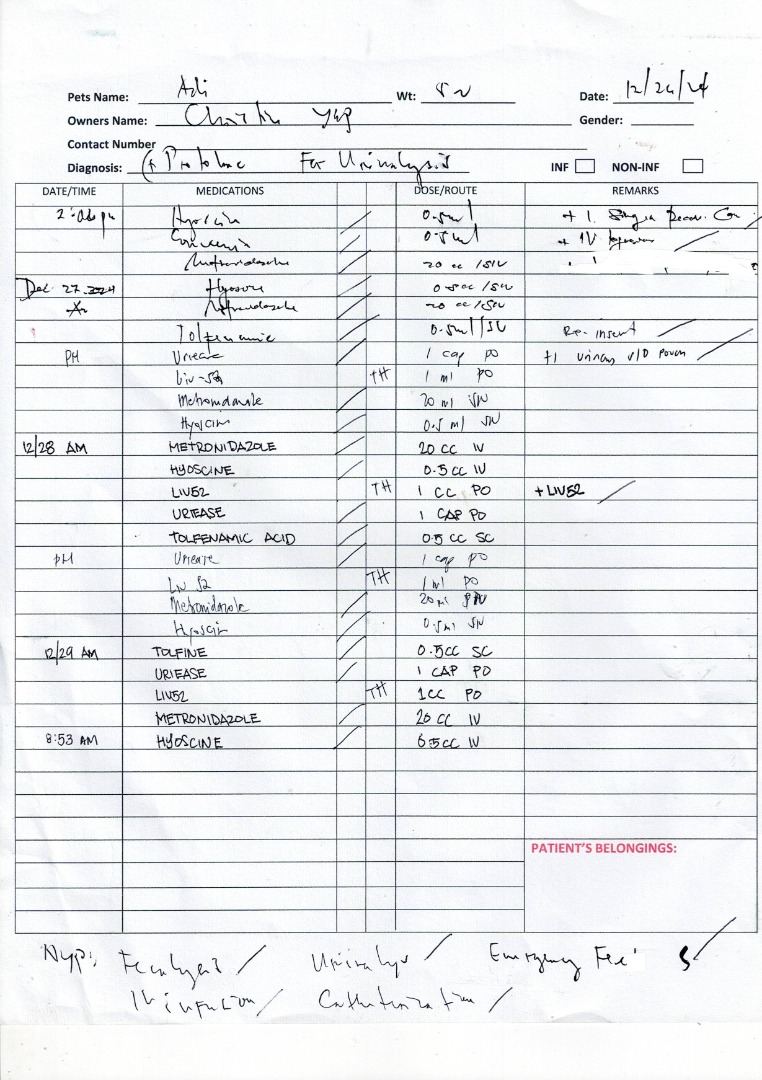 Pets Name: Adi Wt: Date: 12/26/24
Owners Name: Yap Gender:
Contact Number
Diagnosis: For Urinalysis INF NON-INF
DATE/TIME MEDICATIONS DOSE/ROUTE REMARKS
Hyoscin 0.5ml + 1
0.5ml + IV
20 cc /SIV
Dec. 27. 2024 0.5cc /SIV
20 cc /SIV
Tolfenamic 0.5ml SC Re-insert
PM Uriease 1 cap PO +1
Liv-52 TH 1 ml PO
Metronidazole 20 ml
Hyoscin 0.5 ml
12/28 AM METRONIDAZOLE 20 CC IV
HYOSCINE 0.5 CC IV
LIV52 TH 1 CC PO + LIV52
URIEASE 1 CAP PO
TOLFENAMIC ACID 0.5 CC SC
PM Uriease 1 cap PO
Liv 52 TH 1 ml PO
Metronidazole 20 ml
Hyoscin 0.5ml
12/29 AM TOLFINE 0.5CC SC
URIEASE 1 CAP PO
LIV52 TH 1CC PO
METRONIDAZOLE 20 CC IV
8:53 AM HYOSCINE 0.5CC IV
PATIENT'S BELONGINGS:
Fecalysis / / Emergency Fee
IV infusion / Catheterization /